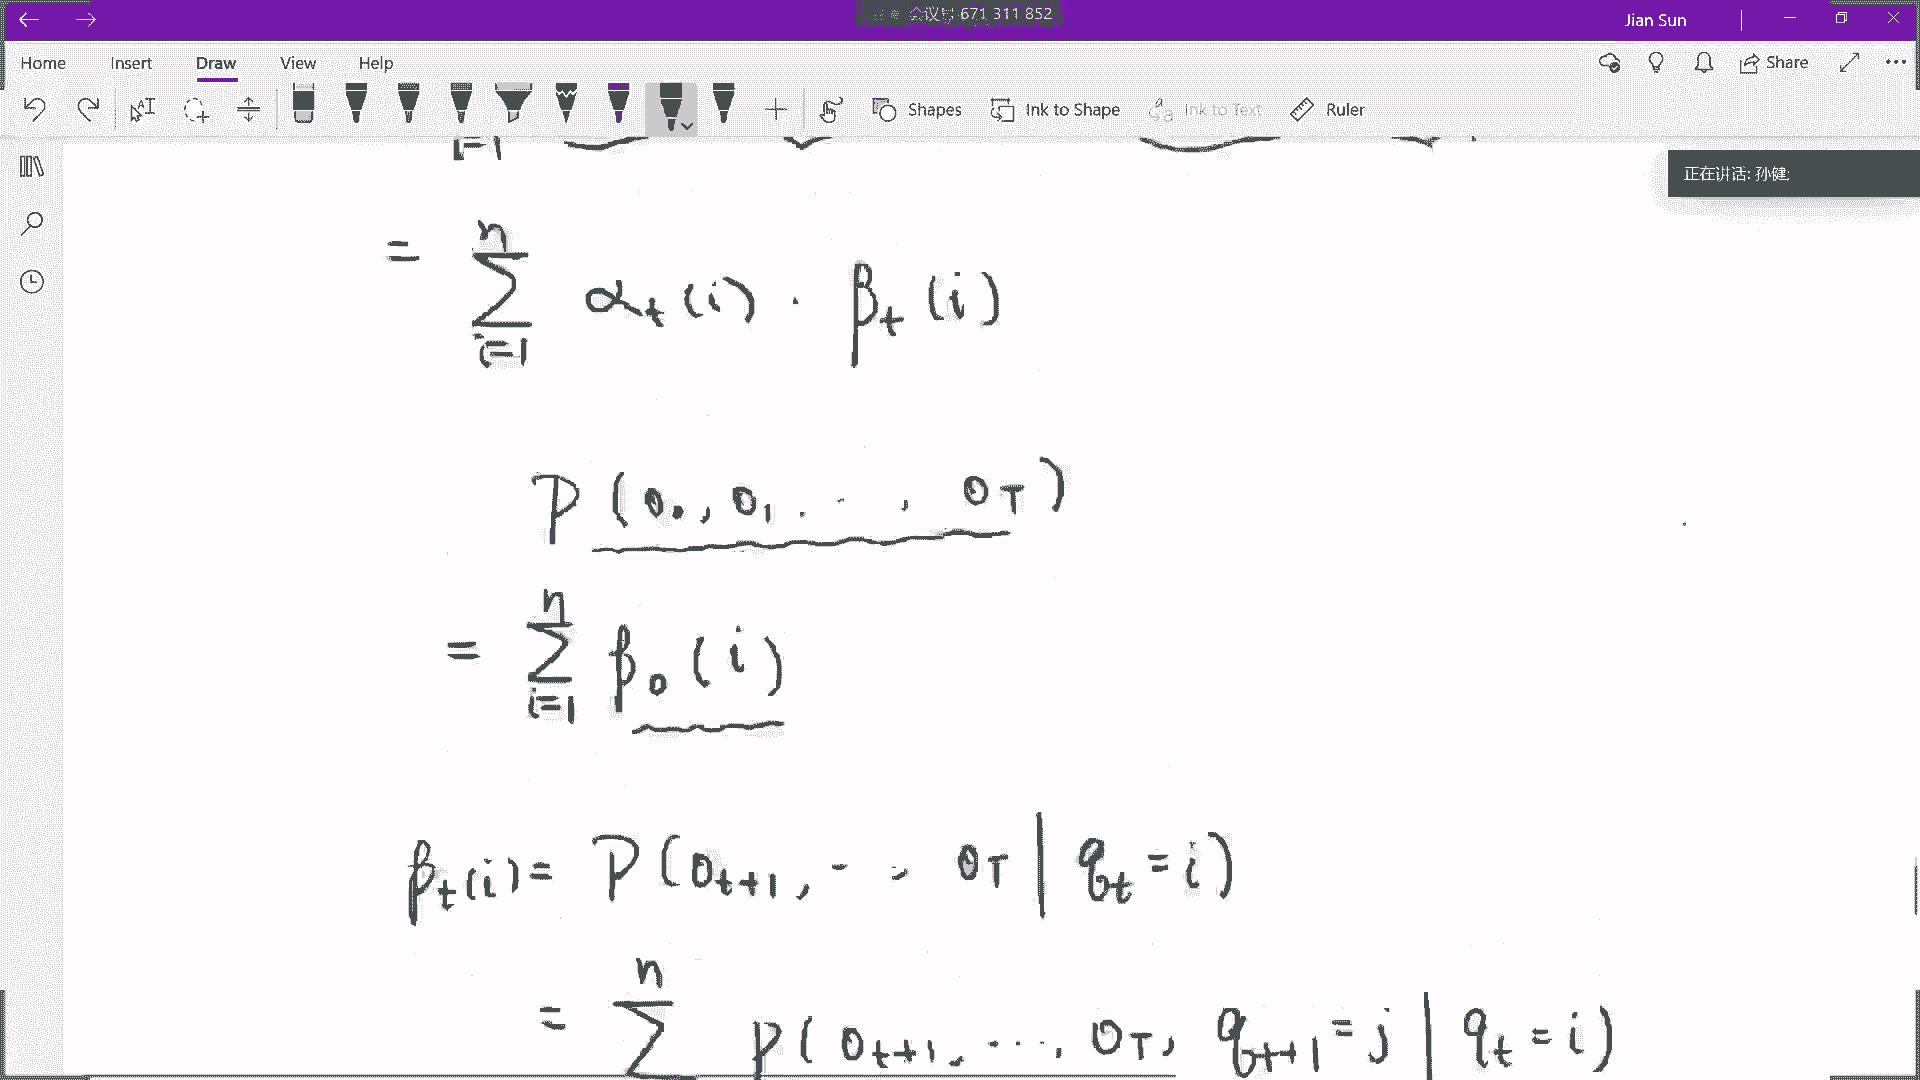 会议号 671 311 852
Jian Sun
Home Insert Draw View Help
Share
Shapes Ink to Shape Ink to Text Ruler
正在讲话: 孙健;
i=1
= ∑ⁿᵢ₌₁ αₜ(i) · βₜ(i)
P(O₀, O₁, ⋯, O_T)
= ∑ⁿᵢ₌₁ β₀(i)
βₜ(i) = P(Oₜ₊₁, ⋯, O_T | qₜ = i)
= ∑ⁿ P(Oₜ₊₁, ⋯, O_T, qₜ₊₁ = j | qₜ = i)